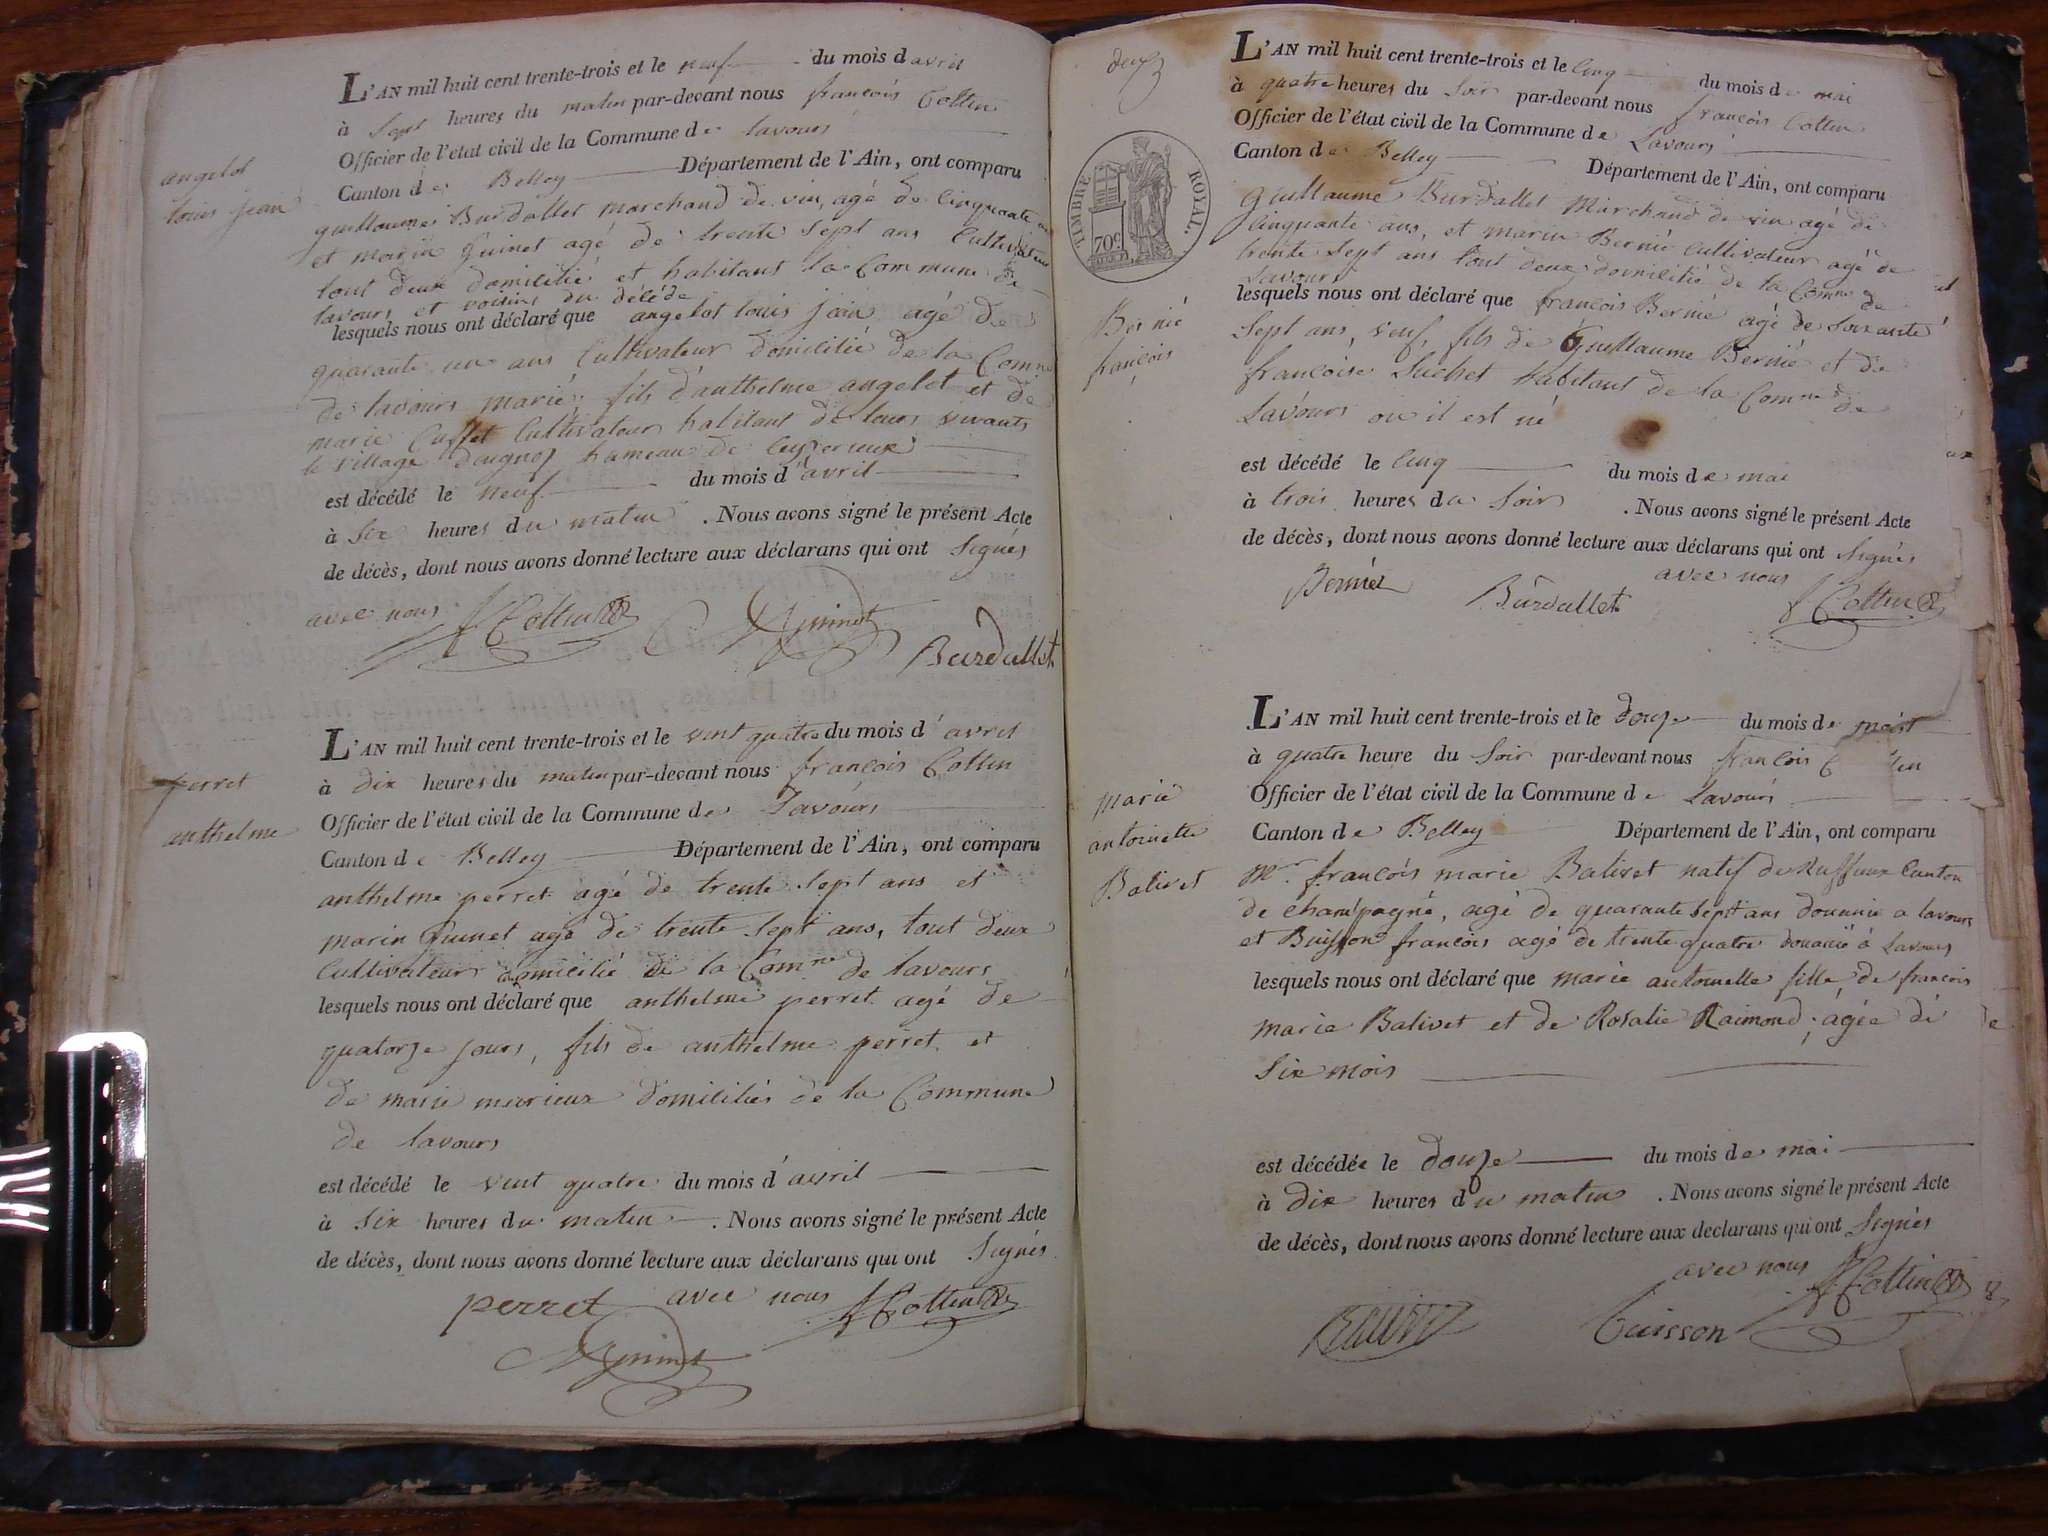 angelot
louis jean
L'AN mil huit cent trente-trois et le neuf du mois d avril
à Sept heures du matin par-devant nous françois Cottin
Officier de l'état civil de la Commune de lavours
Canton de Belley Département de l'Ain, ont comparu
guillaume Burdallet marchand de vin, agé de Cinquante
et marin guinet agé de trente Sept ans Cultivateur
tout deux domicilié et habitant la Commune de
lavours et voisins du décédé
lesquels nous ont déclaré que angelot louis jean agé de
quarante un ans Cultivateur domicilié de la Comne
de lavours marié, fils d'anthelme angelot et de
marie Cultivateur habitant de leurs vivants
le village hameau de
est décédé le neuf du mois d'avril
à Six heures du matin . Nous avons signé le présent Acte
de décès, dont nous avons donné lecture aux déclarans qui ont Signés
avec nous
f Cottin guinet Burdallet
perret
anthelme
L'AN mil huit cent trente-trois et le vint quatre du mois d'avril
à dix heures du matin par-devant nous françois Cottin
Officier de l'état civil de la Commune de Lavours
Canton de Belley Département de l'Ain, ont comparu
anthelme perret agé de trente Sept ans et
marin guinet agé de trente Sept ans, tout deux
Cultivateur domicilié de la Comne de lavours
lesquels nous ont déclaré que anthelme perret agé de
quatorze jours, fils de anthelme perret et
de marie marieux domiciliés de la Commune
de lavours
est décédé le vint quatre du mois d'avril
à Six heures du matin . Nous avons signé le présent Acte
de décès, dont nous avons donné lecture aux déclarans qui ont Signés
perret avec nous f Cottin
guinet
deux
TIMBRE ROYAL.
70c
Bernié
françois
L'AN mil huit cent trente-trois et le Cinq du mois de mai
à quatre heures du Soir par-devant nous françois Cottin
Officier de l'état civil de la Commune de Lavours
Canton de Belley Département de l'Ain, ont comparu
Guillaume Burdallet Marchand de vin agé de
Cinquante ans, et marin Bernié Cultivateur agé de
trente Sept ans tout deux domicilié de la Comne de
Lavours
lesquels nous ont déclaré que françois Bernié agé de Soixante
Sept ans, veuf, fils de Guillaume Bernié et de
françoise Suchet habitant de la Comne de
Lavours ou il est né
est décédé le Cinq du mois de mai
à trois heures du Soir . Nous avons signé le présent Acte
de décès, dont nous avons donné lecture aux déclarans qui ont Signés
avec nous
Bernier Burdallet f Cottin
marie
antoinette
Balivet
L'AN mil huit cent trente-trois et le douze du mois de
à quatre heure du Soir par-devant nous françois
Officier de l'état civil de la Commune de Lavours
Canton de Belley Département de l'Ain, ont comparu
Mr. françois marie Balivet natif de Ruffieux Canton
de champagne, agé de quarante Sept ans a lavours
et Buisson françois agé de trente quatre à Lavours
lesquels nous ont déclaré que marie antoinette fille de françois
marie Balivet et de Rosalie Raimond, agée de
Six mois
est décédée le douze du mois de mai
à dix heures du matin . Nous avons signé le présent Acte
de décès, dont nous avons donné lecture aux declarans qui ont Signés
avec nous f Cottin
Buisson